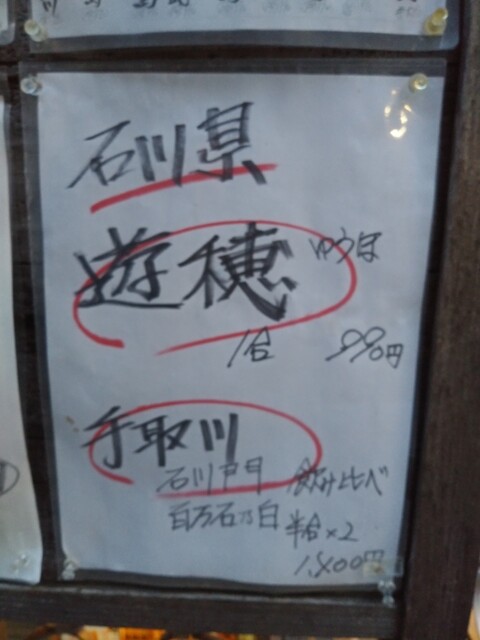 石川県
遊穂 ゆうほ
1合 990円
手取川
石川門 飲み比べ
百万石乃白 半合×2
1,800円